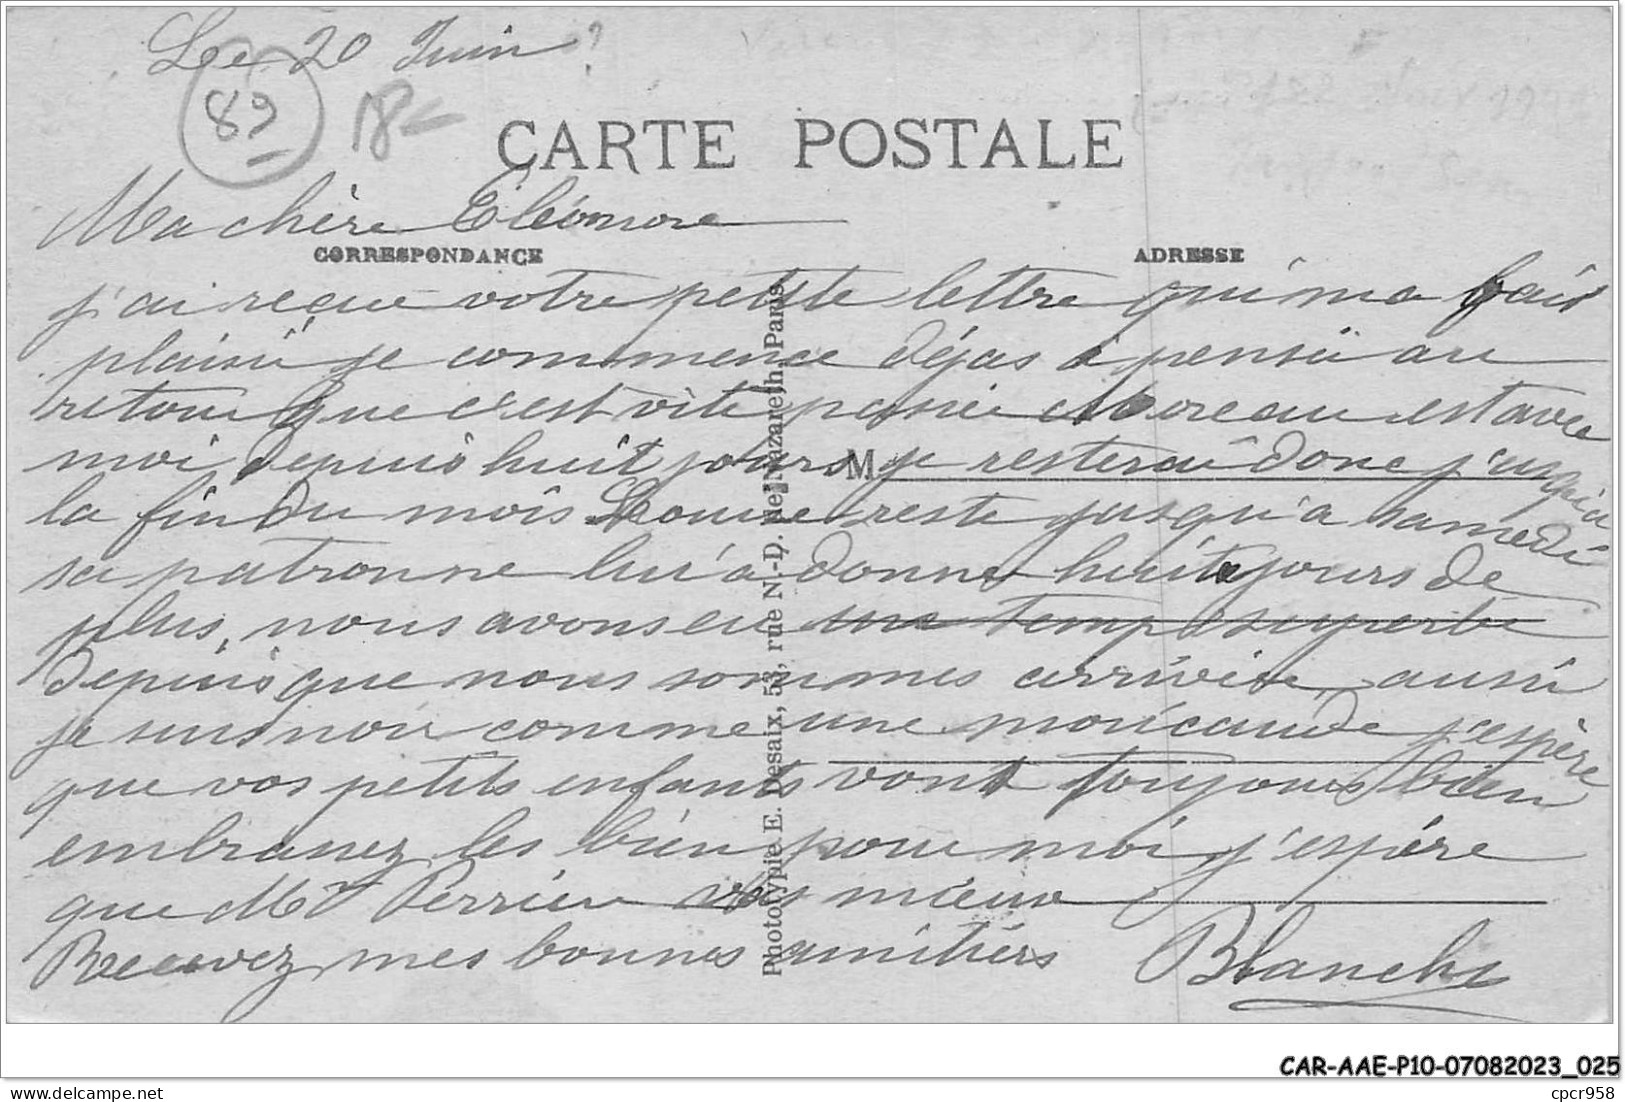 Le 20 Juin ?
89
18-
CARTE POSTALE
Ma chère Eléonore
CORRESPONDANCE
ADRESSE
j'ai reçue votre petite lettre qui m'a fait
plaisir je commence déjas à pensér au
retour que c'est vite passé Moreau est avec
moi depuis huit jours je resterai donc j'usqu'a
la fin du mois Louise reste jusqu'a samedi
sa patronne lui a donné huit jours de
plus, nous avons eu un temps superbe
depuis que nous sommes arrivée, aussi
je suis noir comme une moricaude j'espère
que vos petits enfants vont toujours bien
embrassez les bien pour moi, j'espére
que Mr Perrier vas mieux
Recevez mes bonnes amitiés Blanche
M
Phototypie E. Desaix, 53, rue N.-D. de Nazareth, Paris
CAR-AAE-P10-07082023_025
delcampe.net
cpcr958